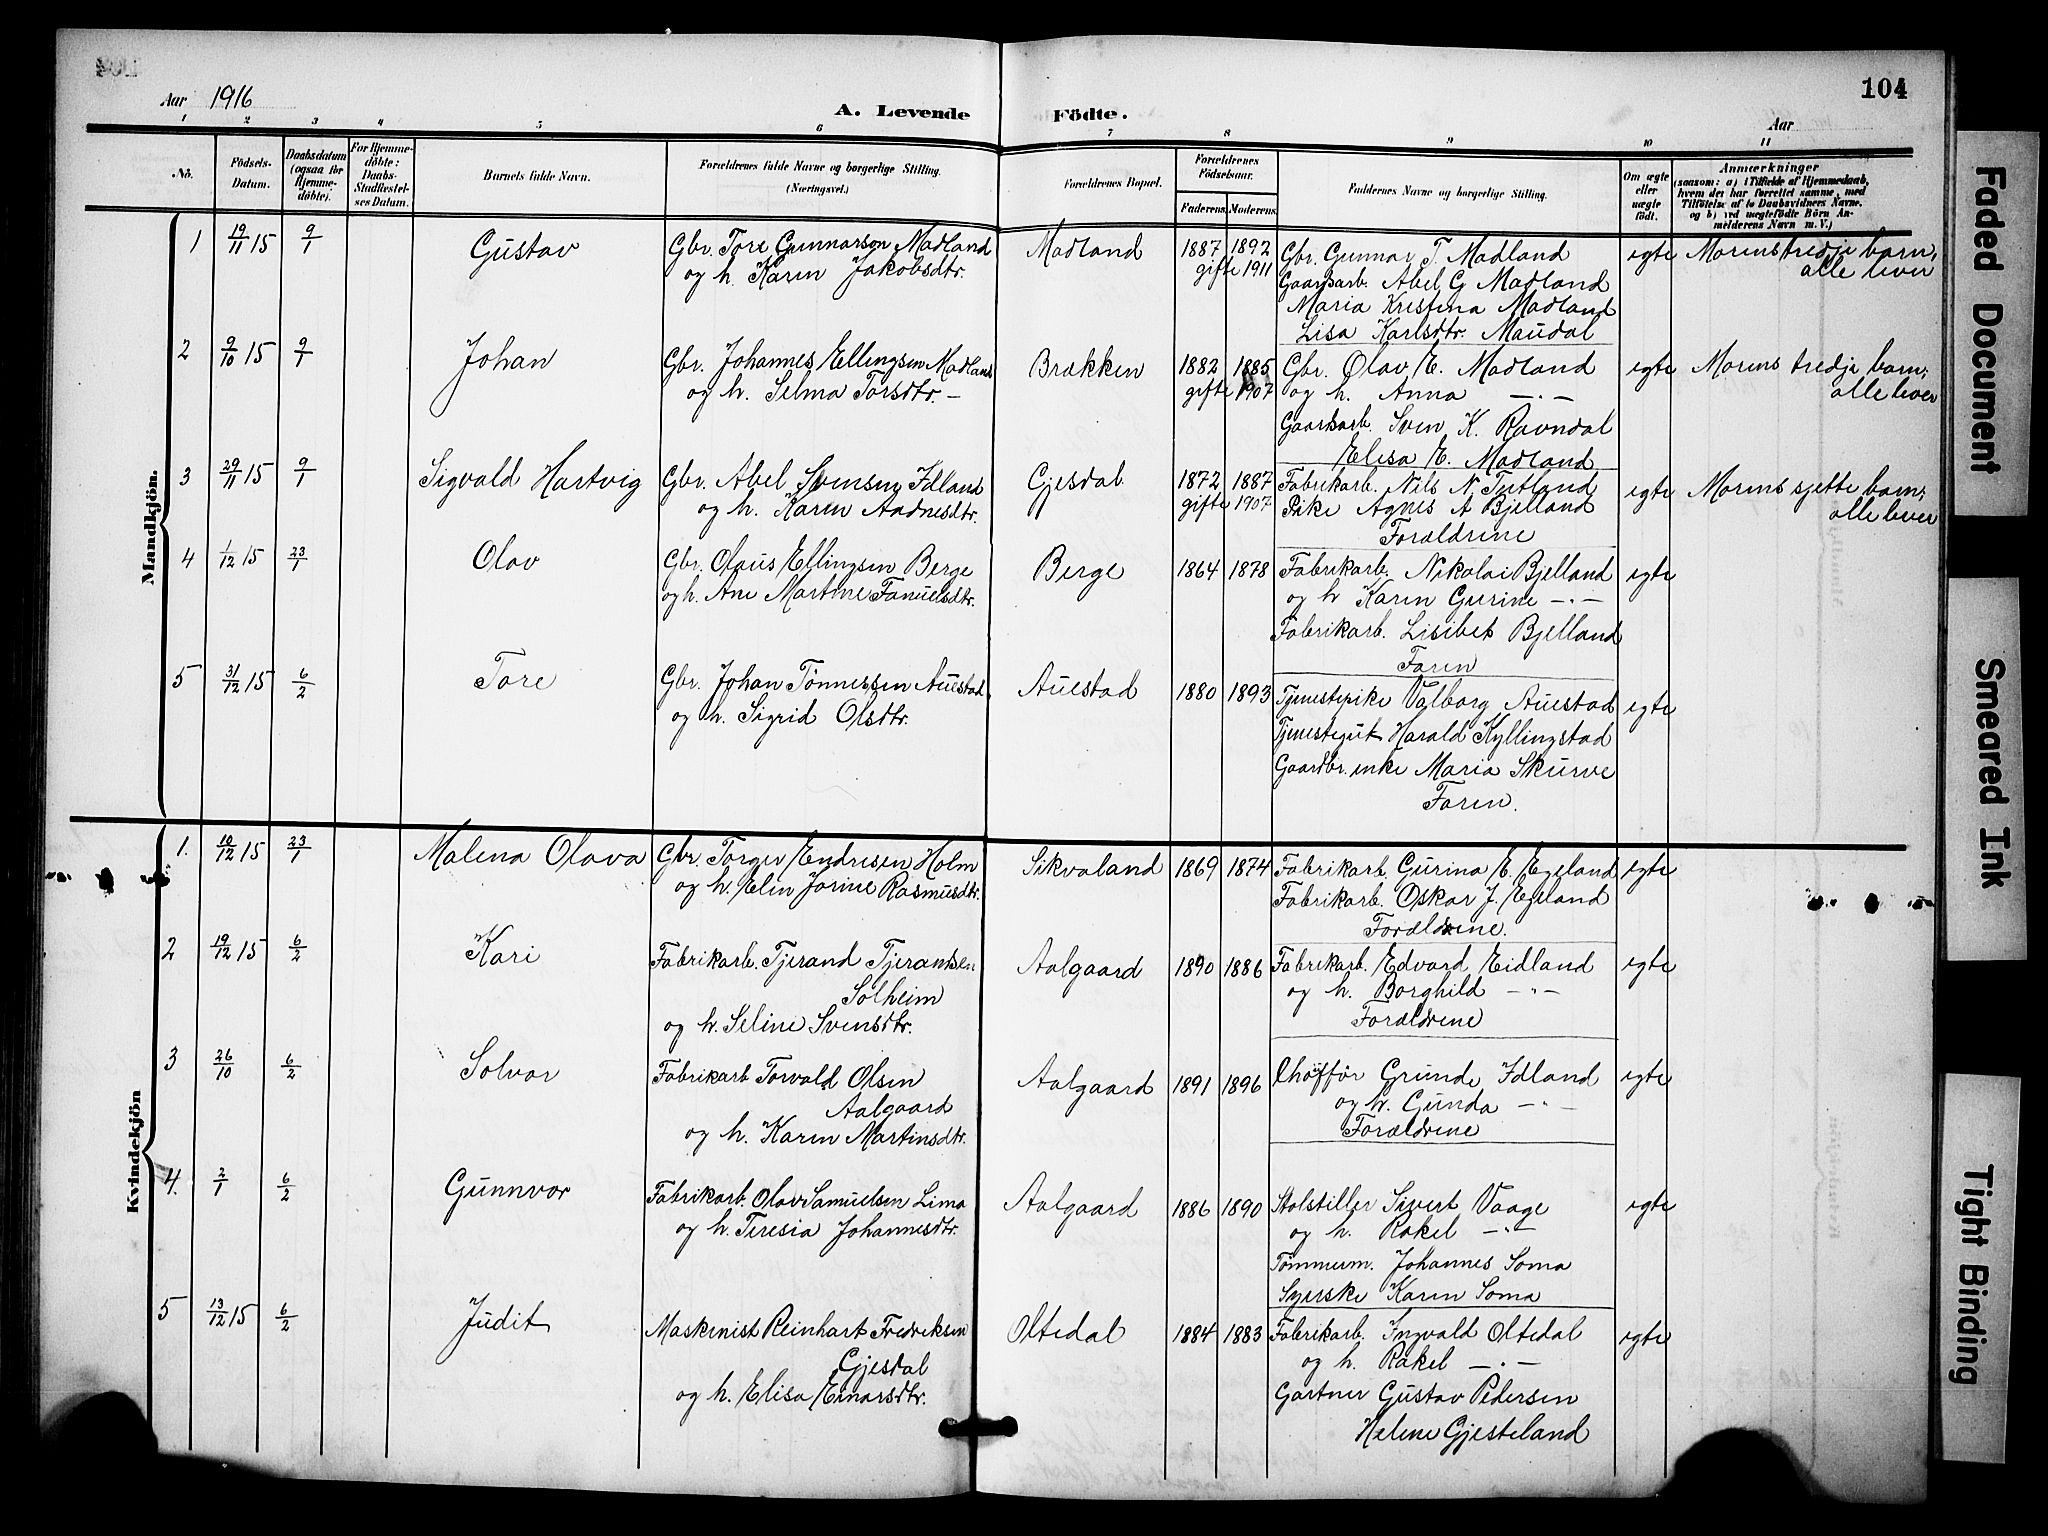 104
Aar 1916
A. Levende
Födte.
Aar
1 2 3 4 5 6 7 8 9 10 11
No.
Födsels-
Datum.
Daabsdatum
(ogsaa for
Hjemme-
döbte).
For Hjemme-
döbte:
Daabs-
Stadfæstel-
ses Datum.
Barnets fulde Navn.
Forældrenes fulde Navne og borgerlige Stilling.
(Næringsvei.)
Forældrenes Bopæl.
Forældrenes
Födselsaar.
Faderens.
Moderens.
Faddernes Navne og borgerlige Stilling.
Om ægte
eller
uægte
födt.
Anmærkninger
(saasom: a) i Tilfælde af Hjemmedaab,
hvem der har forrettet samme, med
Tilföielse af to Daabsvidners Navne.
og b) ved uægtefödte Börn An-
melderens Navn m. V.)
Mandkjön.
1 19/11 15 9/1 Gustav
Gbr. Tore Gunnarson Madland
og h. Karen Jakobsdtr.
Madland
1887 1892
gifte 1911
Gbr. Gunnar T. Madland
Gaardsarb. Abel G Madland
Maria Kristina Madland
Lisa Karlsdtr. Maudal
egte
Morens tredje barn,
alle lever
2 9/10 15 9/1 Johan
Gbr. Johannes Ellingsen Madland
og h. Selma Torsdtr. —
Brækken
1882 1885
gifte 1907
Gbr. Olav E. Madland
og h. Anna —"—
Gaardsarb. Sven K. Ravndal
Elisa E. Madland
egte
Morens tredje barn;
alle lever
3 29/11 15 9/1 Sigvald Hartvig
Gbr. Abel Svensen Idland
og h. Karen Aadnesdtr.
Gjesdal
1872 1887
gifte 1907
Fabrikarb. Nils N. Tutland
Pike Agnes A Bjelland
Forældrene
egte
Morens sjette barn;
alle lever
4 1/12 15 23/1 Olav
Gbr. Olaus Ellingsen Berge
og h. Ane Martine Fanuelsdtr.
Berge
1864 1878
Fabrikarb. Nikolai Bjelland
og h Karen Gurine —"—
Fabrikarb. Lisibet Bjelland
Faren
egte
5 31/12 15 6/2 Tore
Gbr. Johan Tønnessen Auestad
og h. Sigrid Olsdtr.
Auestad
1880 1893
Tjenestepike Valborg Auestad
Tjenestegut Harald Kyllingstad
Gaardbr.enke Maria Skurve
Faren.
egte
Kvindekjön
1. 10/12 15 23/1 Malena Olava
Gbr. Torger Endresen Holm
og h. Elin Jorine Rasmusdtr.
Sikvaland
1869 1874
Fabrikarb. Gurina E. Egeland
Fabrikarb. Oskar J. Egeland
Forældrene.
egte
2 19/12 15 6/2 Kari
Fabrikarb. Tjerand Tjerantsen
Solheim
og h. Seline Svensdtr.
Aalgaard
1890 1886
Fabrikarb. Edvard Eidland
og h. Borghild —"—
Forældrene
egte
3 26/10 6/2 Solvor
Fabrikarb Torvald Olsen
Aalgaard
og h. Karen Martinsdtr.
Aalgaard
1891 1896
Choffør Grunde Idland
og h. Gunda —"—
Forældrene
egte
4. 2/1 6/2 Gunnvor
Fabrikarb. Olav Samuelsen Lima
og h. Teresia Johannesdtr.
Aalgaard
1886 1890
Stolstiller Sivert Vaage
og h. Rakel —"—
Tømmerm. Johannes Soma
Syerske Karen Soma
egte
5 13/12 15 6/2 Judit
Maskinist Reinhart Fredriksen
Gjesdal
og h. Elisa Einarsdtr.
Oltedal
1884 1883
Fabrikarb. Ingvald Oltedal
og h. Rakel —"—
Gartner Gustav Pedersen
Helene Gjesteland
egte
Faded Document
Smeared Ink
Tight Binding